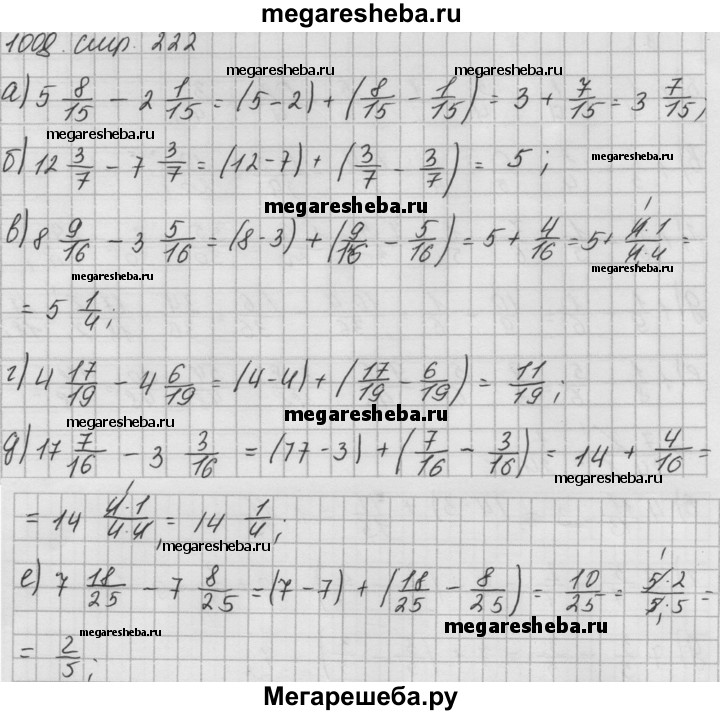 megaresheba.ru
1008. стр. 222
megaresheba.ru megaresheba.ru
а) 5 8/15 - 2 1/15 = (5-2) + (8/15 - 1/15) = 3 + 7/15 = 3 7/15;
megaresheba.ru
б) 12 3/7 - 7 3/7 = (12-7) + (3/7 - 3/7) = 5;
megaresheba.ru
megaresheba.ru
в) 8 9/16 - 3 5/16 = (8-3) + (9/16 - 5/16) = 5 + 4/16 = 5 + 4·1/4·4 =
megaresheba.ru megaresheba.ru
= 5 1/4;
г) 4 17/19 - 4 6/19 = (4-4) + (17/19 - 6/19) = 11/19;
megaresheba.ru megaresheba.ru
д) 17 7/16 - 3 3/16 = (17-3) + (7/16 - 3/16) = 14 + 4/16 =
megaresheba.ru
= 14 4·1/4·4 = 14 1/4;
megaresheba.ru
е) 7 18/25 - 7 8/25 = (7-7) + (18/25 - 8/25) = 10/25 = 5·2/5·5 =
megaresheba.ru megaresheba.ru
= 2/5;
Мегарешеба.ру